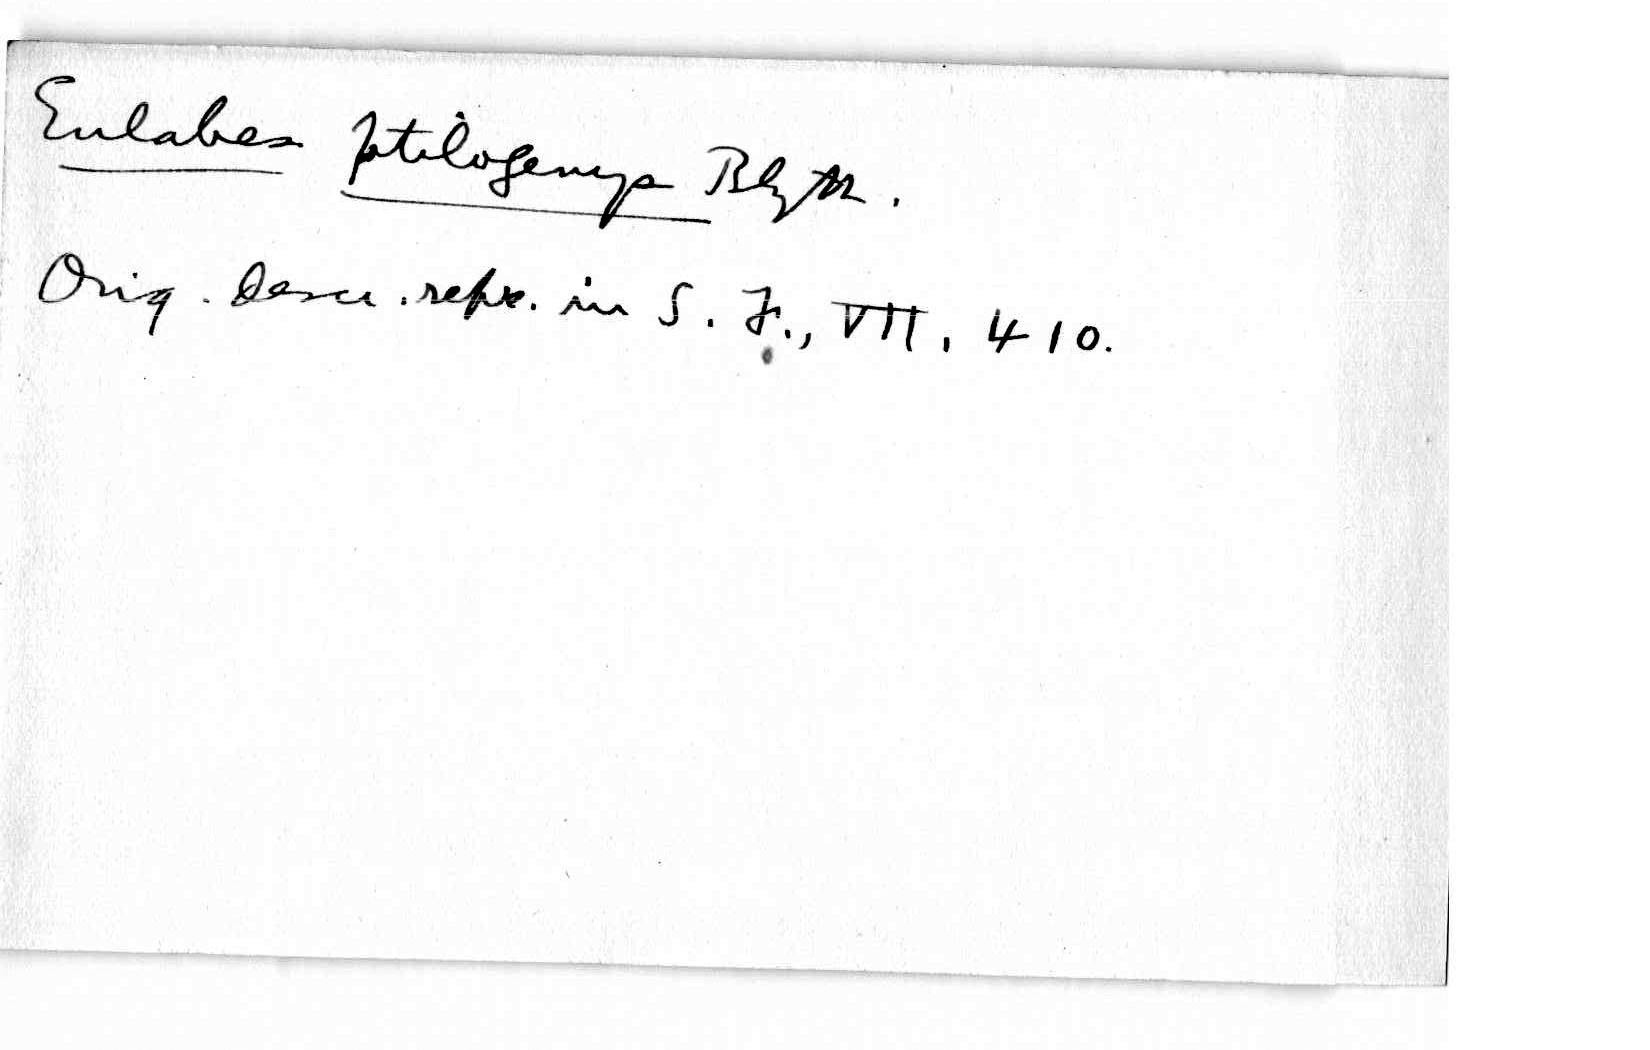 Eulabes ptilogenys Blyth.
Orig. Descr. repr. in S. F., VII, 410.